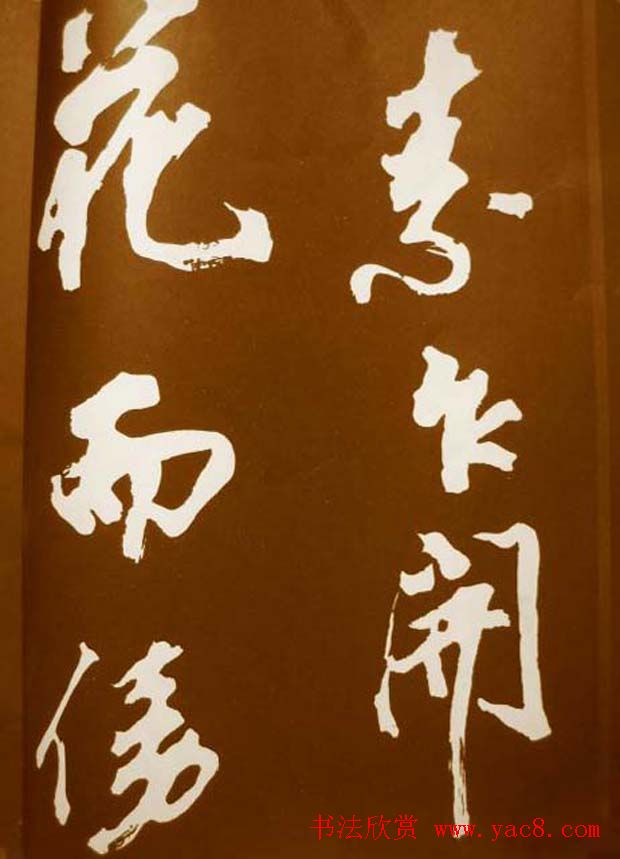 素乍開
花而傍
书法欣赏 www.yac8.com